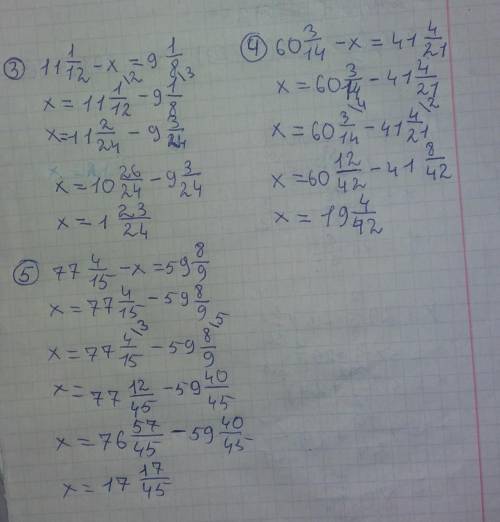 ③ 11 1/12 - x = 9 1/8
x = 11 1/12 \2 - 9 1/8 \3
x = 11 2/24 - 9 3/24
x = 10 26/24 - 9 3/24
x = 1 23/24
④ 60 3/14 - x = 41 4/21
x = 60 3/14 - 41 4/21
x = 60 3/14 \4 - 41 4/21 \2
x = 60 12/42 - 41 8/42
x = 19 4/42
⑤ 77 4/15 - x = 59 8/9
x = 77 4/15 - 59 8/9
x = 77 4/15 \3 - 59 8/9 \5
x = 77 12/45 - 59 40/45
x = 76 57/45 - 59 40/45
x = 17 17/45